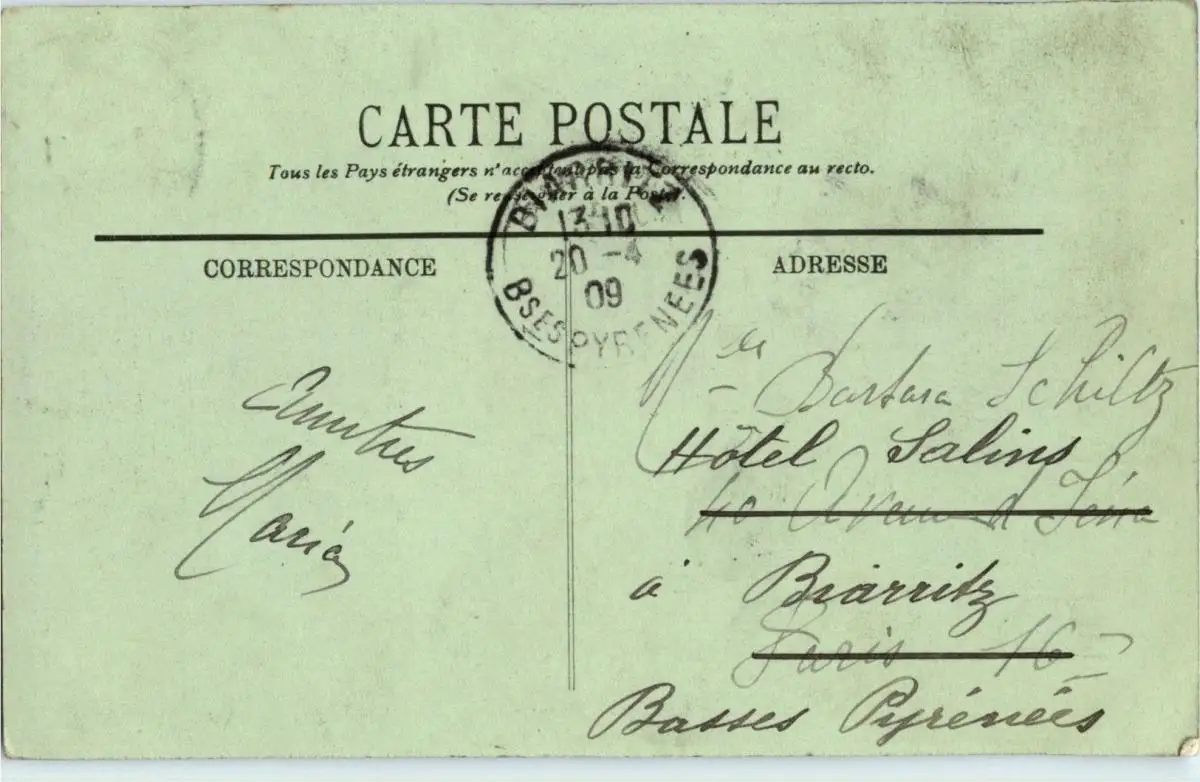 CARTE POSTALE
Tous les Pays étrangers n'acceptent pas la Correspondance au recto.
(Se renseigner à la Poste).
BIARRITZ
13 10
20 - 4
09
BSES PYRENEES
CORRESPONDANCE
ADRESSE
Maria
Barbara Schiltz
Hôtel Salins
40 Avenue d'Iéna
à Biarritz
Paris 16
Basses Pyrénées